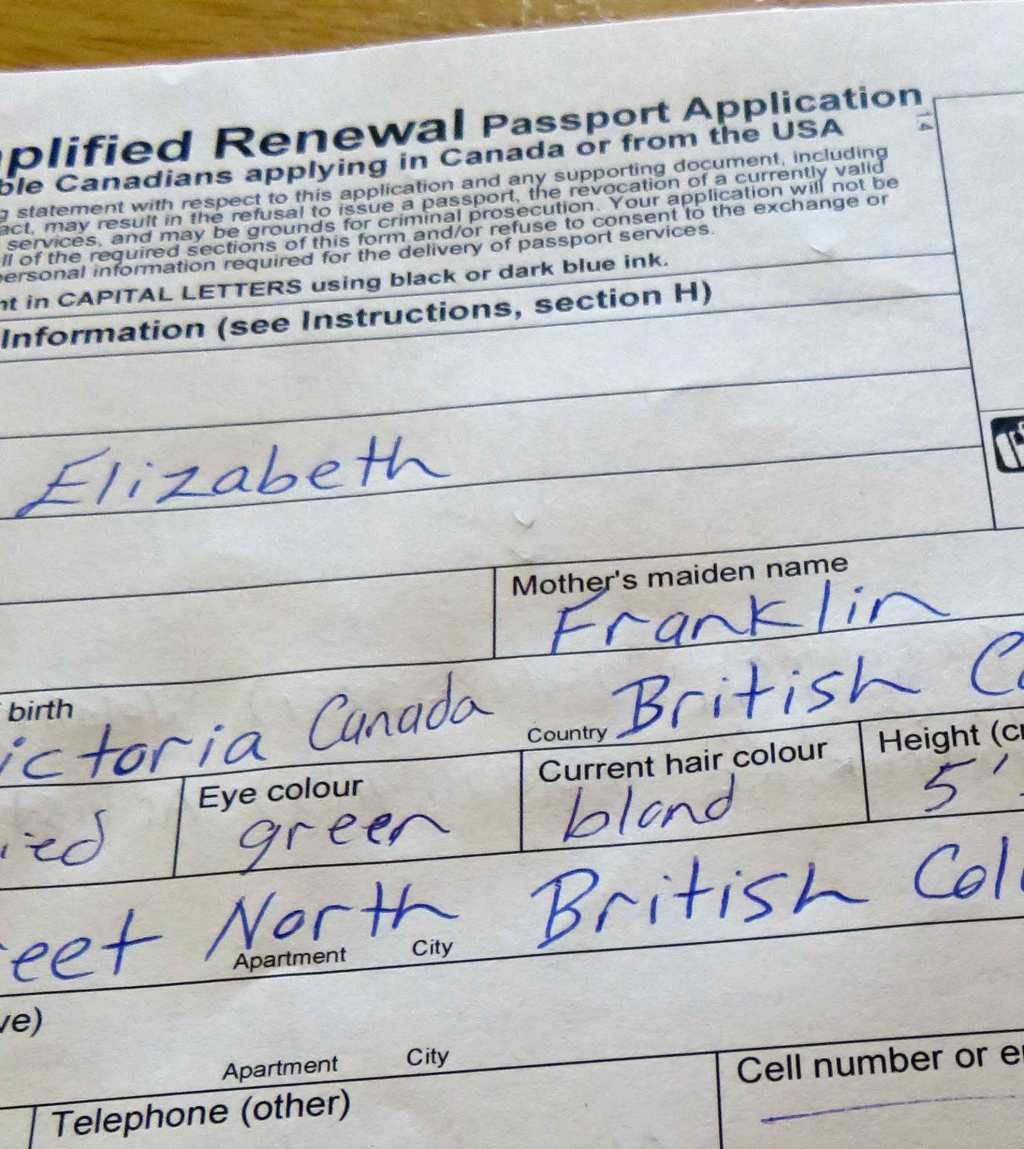 plified Renewal Passport Application
ble Canadians applying in Canada or from the USA
g statement with respect to this application and any supporting document, including
act, may result in the refusal to issue a passport, the revocation of a currently valid
services, and may be grounds for criminal prosecution. Your application will not be
ll of the required sections of this form and/or refuse to consent to the exchange or
personal information required for the delivery of passport services.
nt in CAPITAL LETTERS using black or dark blue ink.
Information (see Instructions, section H)
Elizabeth
Mother's maiden name
Franklin
birth
ictoria Canada Country British C
Eye colour Current hair colour Height (c
ied green blond 5'
reet North British Col
Apartment City
ve)
Apartment City
Telephone (other) Cell number or e